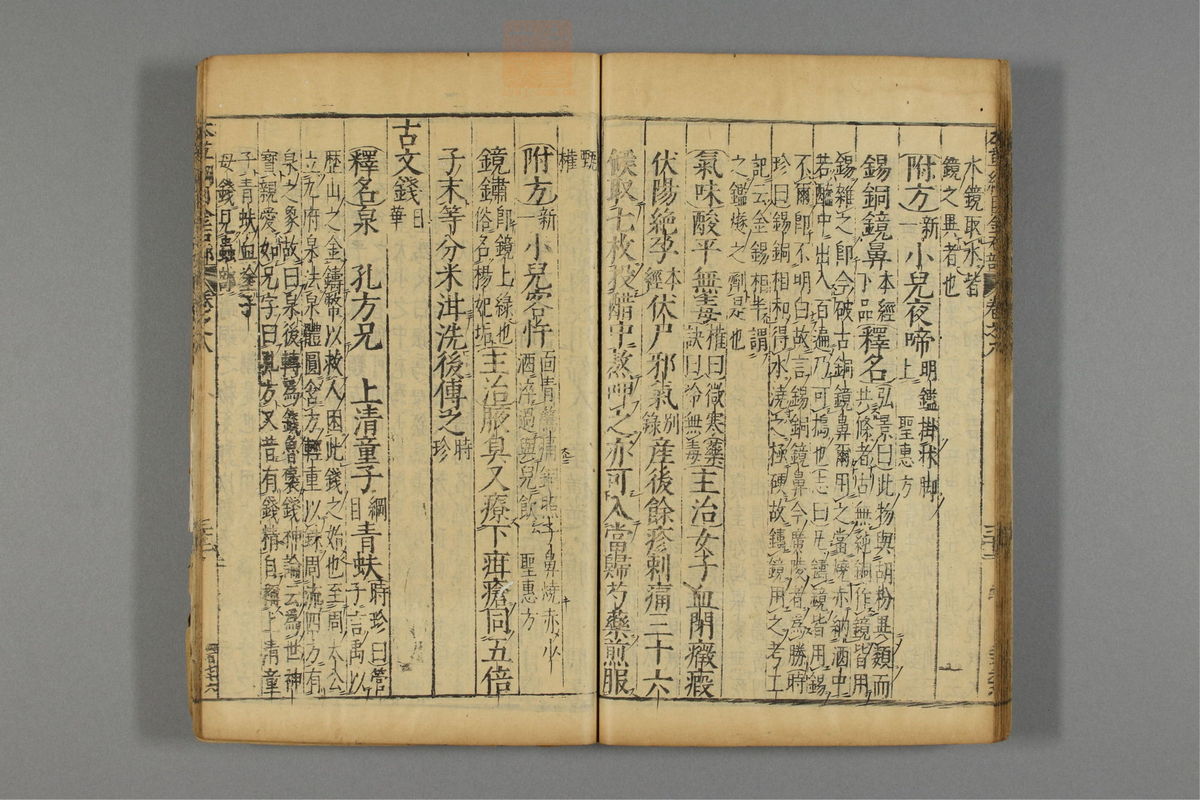 水鏡取水者
鏡之異者也
附方新一小兒夜啼明鑑掛牀脚上聖惠方
錫銅鏡鼻本經下品釋名弘景曰此物與胡粉異類而
共條者古無純銅作鏡皆用
錫雜之即今破古銅鏡鼻爾用之當燒赤納酒中
若醯中出入百遍乃可擣也志曰凡鑄鏡皆用錫
不爾即不明白故言錫銅鏡鼻今廣陵者爲勝時
珍曰錫銅相和得水澆之極硬故鑄鏡用之考工
記云金錫相半謂
之鑑燧之劑是也
氣味酸平無毒權曰微寒藥訣曰冷無毒主治女子血閉癥瘕
伏陽絶孕本經伏尸邪氣別錄産後餘疹刺痛三十六
候取七枚投醋中熬呷之亦可入當歸芍藥煎服
甄權
附方新一小兒客忤面青驚痛銅照子鼻燒赤少
酒淬過與兒飲聖惠方
鏡鏽即鏡上綠也俗名楊妃垢主治腋臭又療下疳瘡同五倍
子末等分米泔洗後傅之時珍
古文錢日華
釋名泉 孔方兄 上清童子綱目青蚨時珍曰管子言禹以
歷山之金鑄幣以救人困此錢之始也至周太公
立九府泉法泉體圓含方輕重以銖周流四方有
泉之象故曰泉後轉爲錢魯褒錢神論云爲世神
寶親愛如兄字曰孔方又昔有錢精自稱上清童
子青蚨血塗子
母錢見蟲部